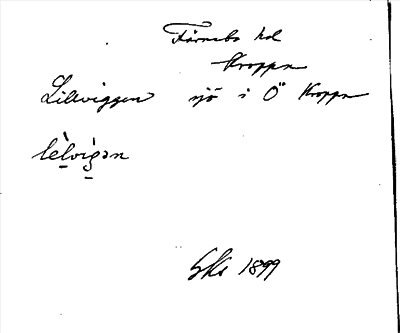 Färnebo hd
Kroppa
Lilviggen sjö i Ö Kroppa
lèlvìgən
GKs 1899